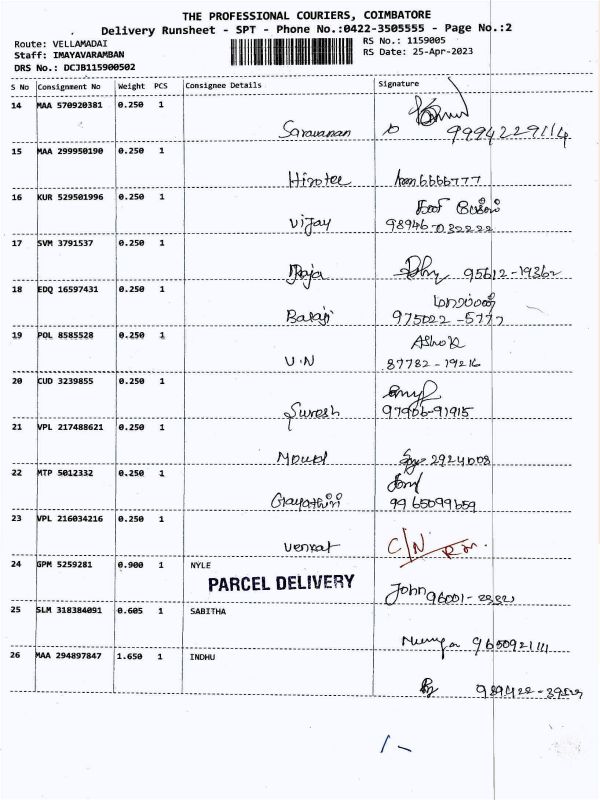 THE PROFESSIONAL COURIERS, COIMBATORE
Delivery Runsheet - SPT - Phone No.:0422-3505555 - Page No.:2
Route: VELLAMADAI
RS No.: 1159005
Staff: IMAYAVARAMBAN
RS Date: 25-Apr-2023
DRS No.: DCJB115900502
S No Consignment No Weight PCS Consignee Details Signature
14 MAA 570920381 0.250 1
Saravanan 9994229114
15 MAA 299950190 0.250 1
6666777
16 KUR 529501996 0.250 1
Vijay
17 SVM 3791537 0.250 1
Raja 95612-19362
18 EDQ 16597431 0.250 1
Balaji 975022-5777
19 POL 8585528 0.250 1
Ashok
V.N 87782-19216
20 CUD 3239855 0.250 1
Suresh 97906-91915
21 VPL 217488621 0.250 1
2924008
22 MTP 5012332 0.250 1
Gayathiri 9965099659
23 VPL 216034216 0.250 1
Venkat C/N
24 GPM 5259281 0.900 1 NYLE
PARCEL DELIVERY
John
25 SLM 318384091 0.605 1 SABITHA
9650921111
26 MAA 294897847 1.650 1 INDHU